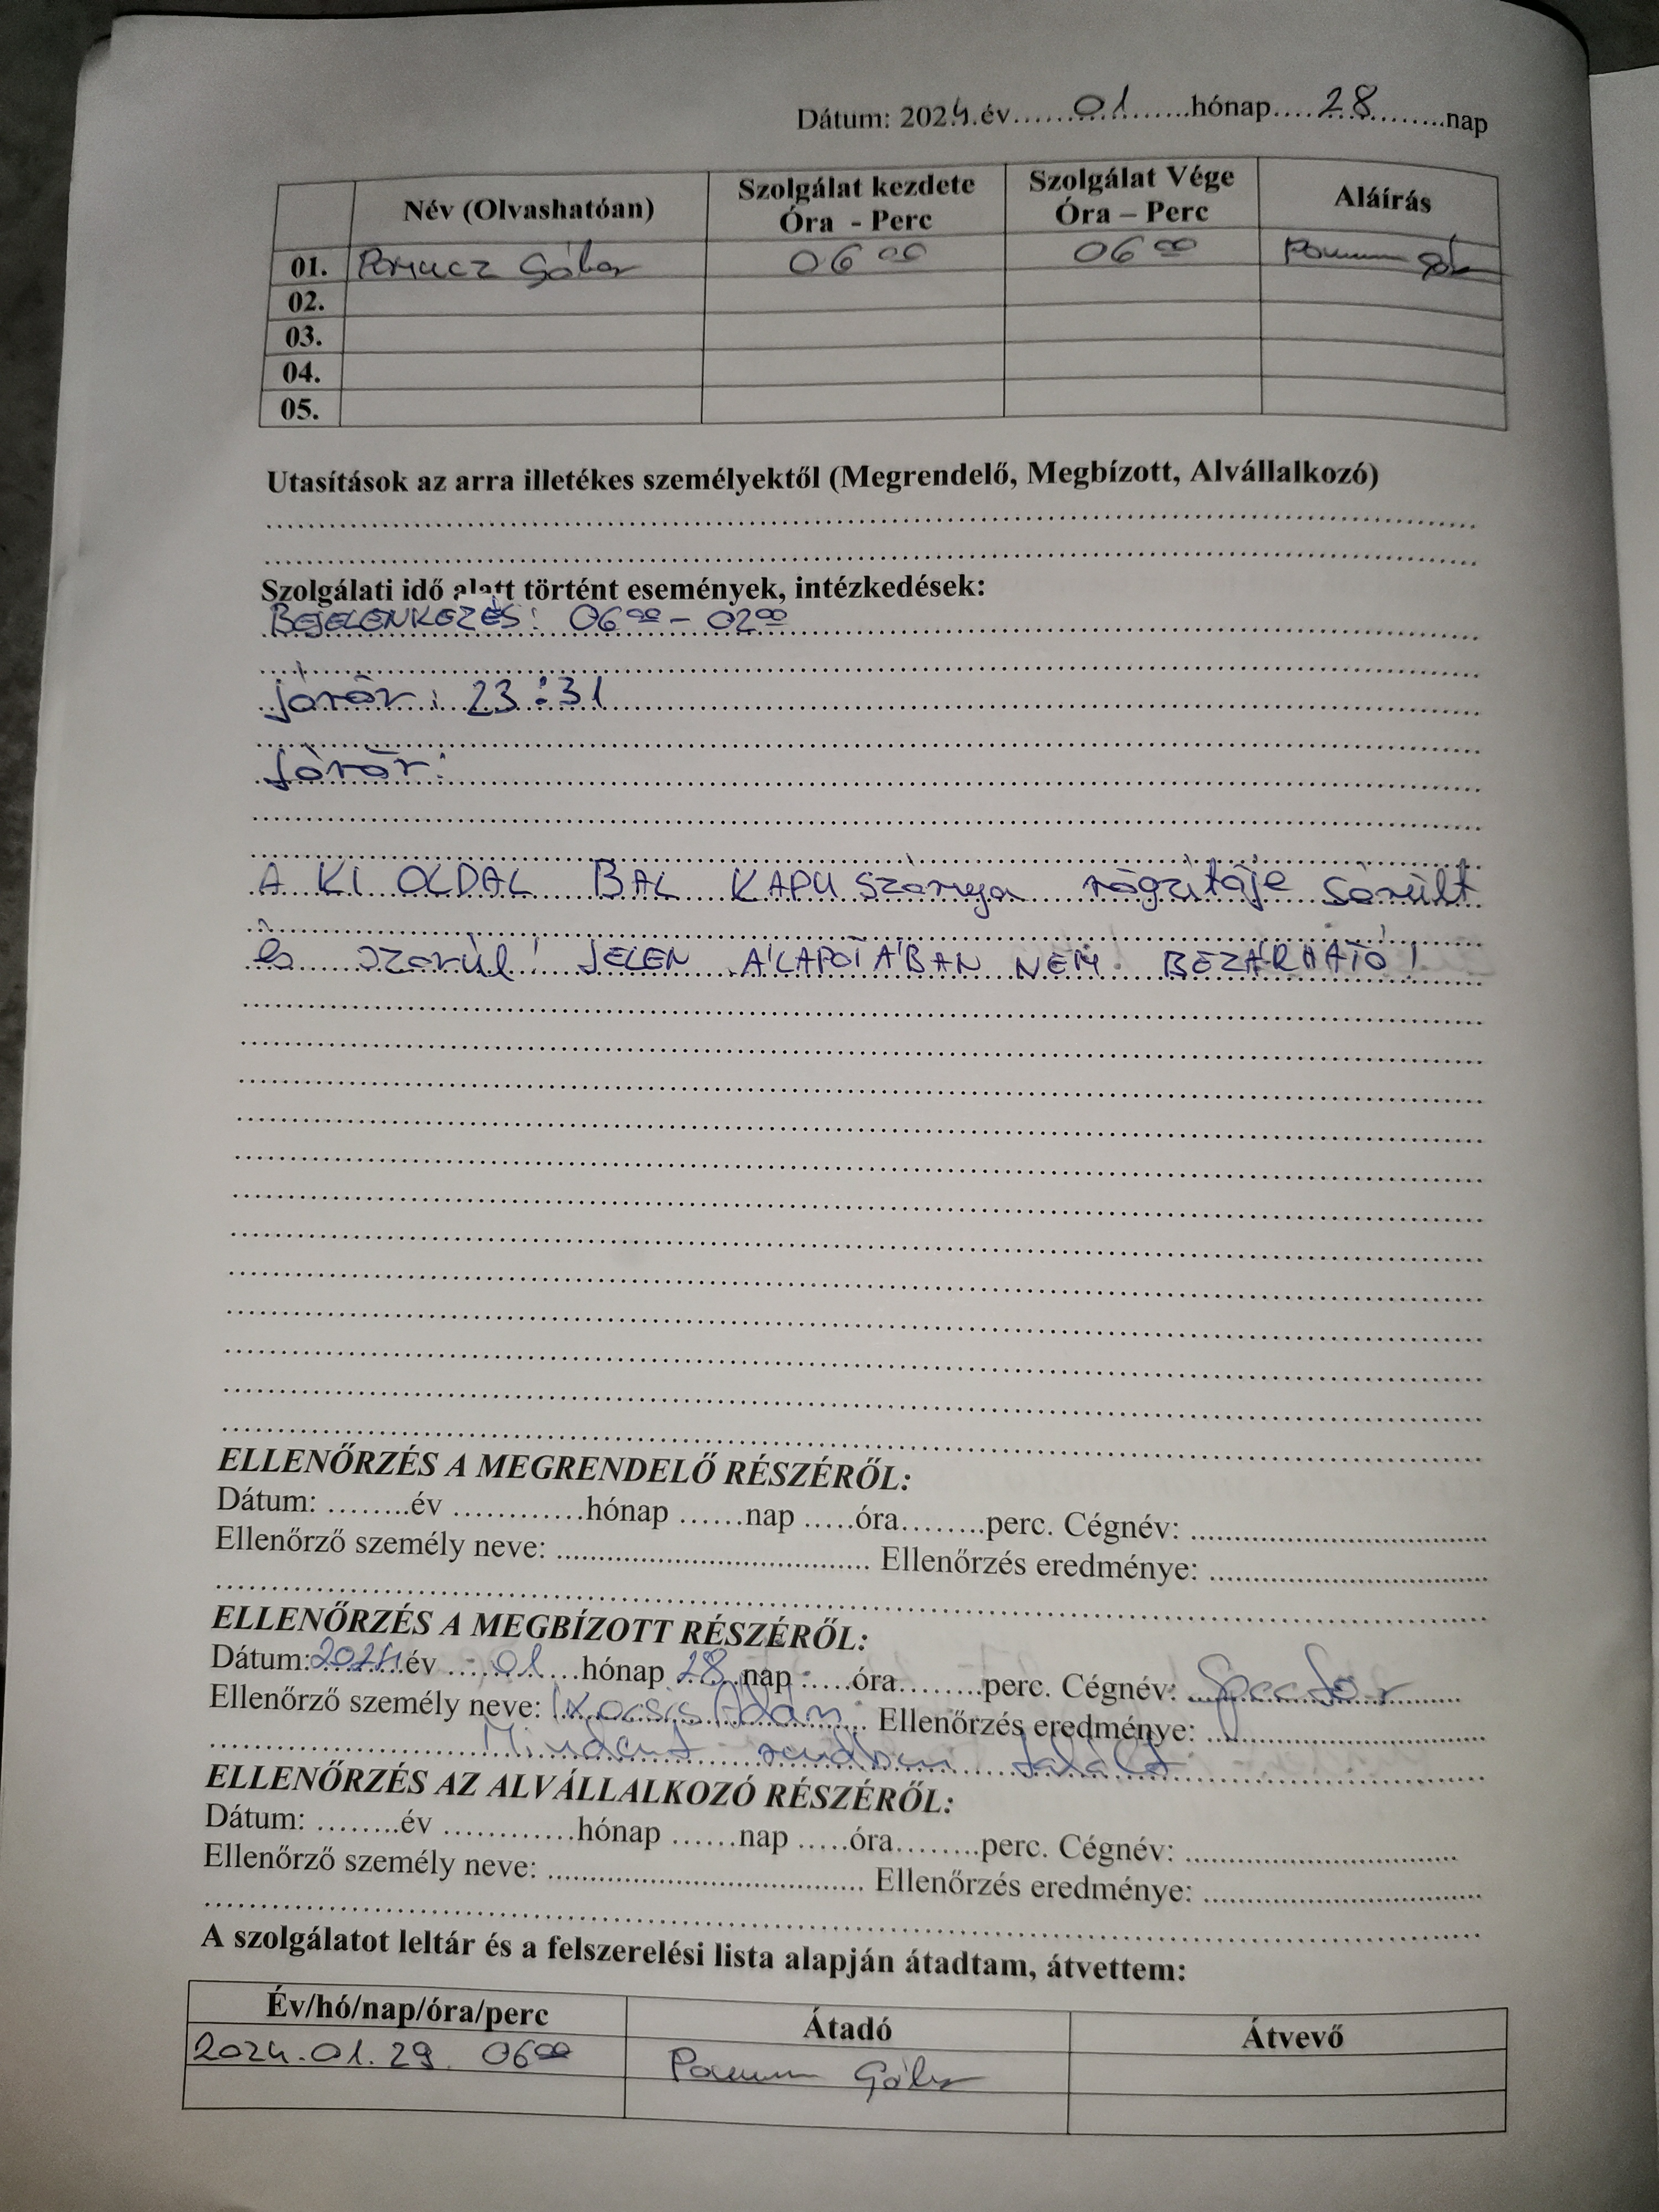 Dátum: 2024.év...........01...........hónap.....28...........nap
Név (Olvashatóan) Szolgálat kezdete Óra - Perc Szolgálat Vége Óra – Perc Aláírás
01. Gábor 06 00 06 00
02.
03.
04.
05.
Utasítások az arra illetékes személyektől (Megrendelő, Megbízott, Alvállalkozó)
Szolgálati idő alatt történt események, intézkedések:
BEJELENKEZÉS: 06 00 - 02 00
járőr: 23:31
járőr:
A KI OLDAL BAL KAPU szárnya rögzitője sérült
és szorúl! JELEN ÁLAPOTÁBAN NEM BEZÁRHATÓ!
ELLENŐRZÉS A MEGRENDELŐ RÉSZÉRŐL:
Dátum: ........év ............hónap ......nap .....óra........perc. Cégnév: ..................................
Ellenőrző személy neve: ..................................... Ellenőrzés eredménye: ..................................
ELLENŐRZÉS A MEGBÍZOTT RÉSZÉRŐL:
Dátum: 2024 év ....01....hónap 28 nap .....óra........perc. Cégnév:
Ellenőrző személy neve: Kocsis Ádám Ellenőrzés eredménye: ..................................
Mindent rendben talált
ELLENŐRZÉS AZ ALVÁLLALKOZÓ RÉSZÉRŐL:
Dátum: ........év ............hónap ......nap .....óra........perc. Cégnév: ..................................
Ellenőrző személy neve: ..................................... Ellenőrzés eredménye: ..................................
A szolgálatot leltár és a felszerelési lista alapján átadtam, átvettem:
Év/hó/nap/óra/perc Átadó Átvevő
2024.01.29 06 00 Gábor